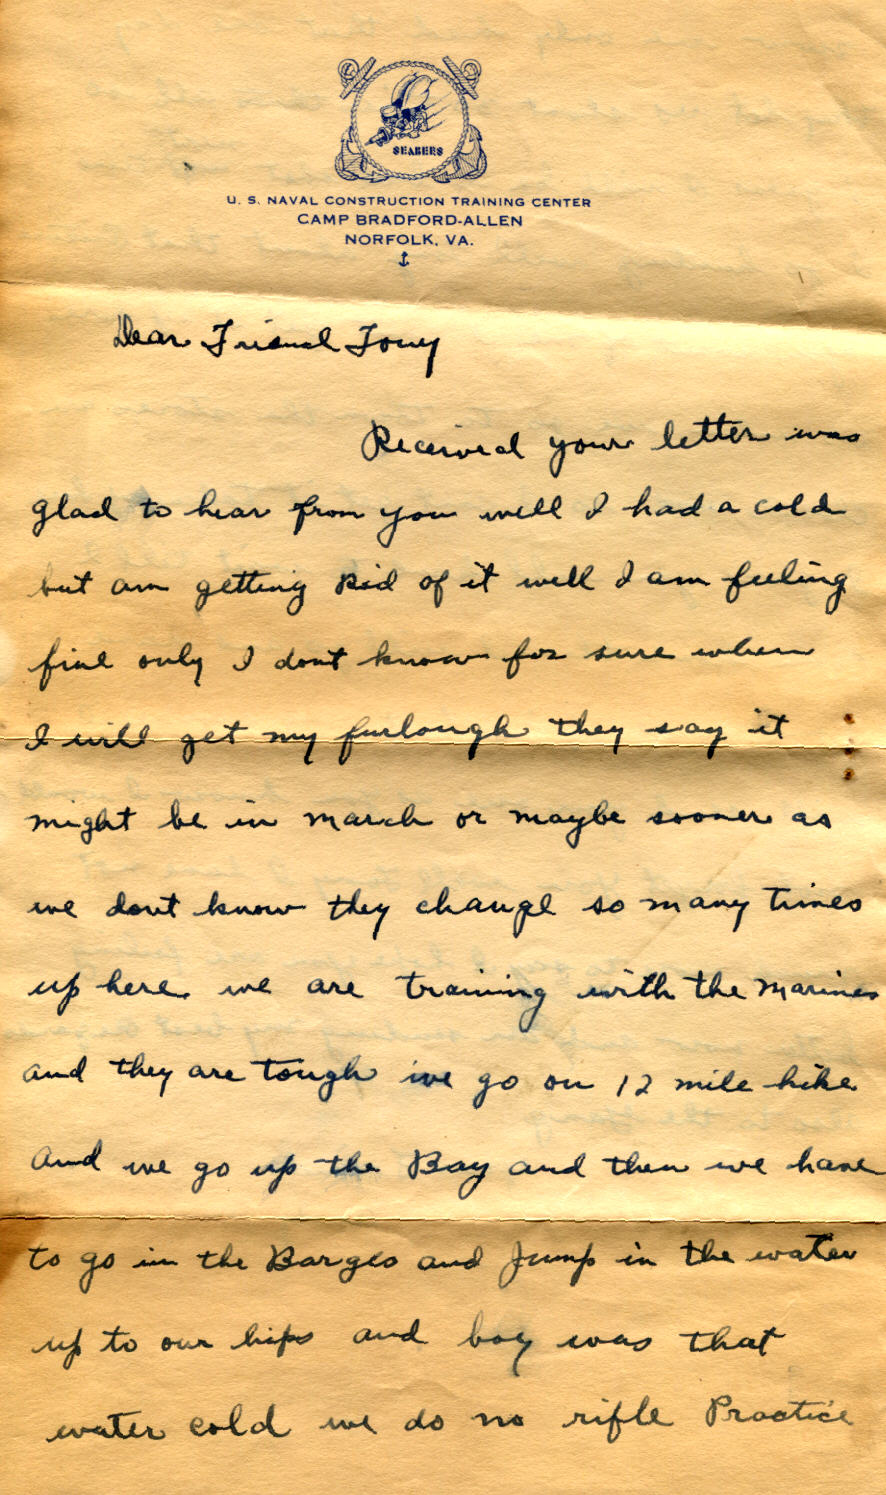 SEABEES
U. S. NAVAL CONSTRUCTION TRAINING CENTER
CAMP BRADFORD-ALLEN
NORFOLK, VA.
Dear Friend Tony
Received your letter was
glad to hear from you well I had a cold
but am getting Rid of it well I am feeling
fine only I dont know for sure when
I will get my furlough they say it
might be in march or maybe sooner as
we dont know they change so many times
up here we are training with the marines
and they are tough we go on 12 mile hike
and we go up the Bay and then we have
to go in the Barges and Jump in the water
up to our hips and boy was that
water cold we do no rifle Practice